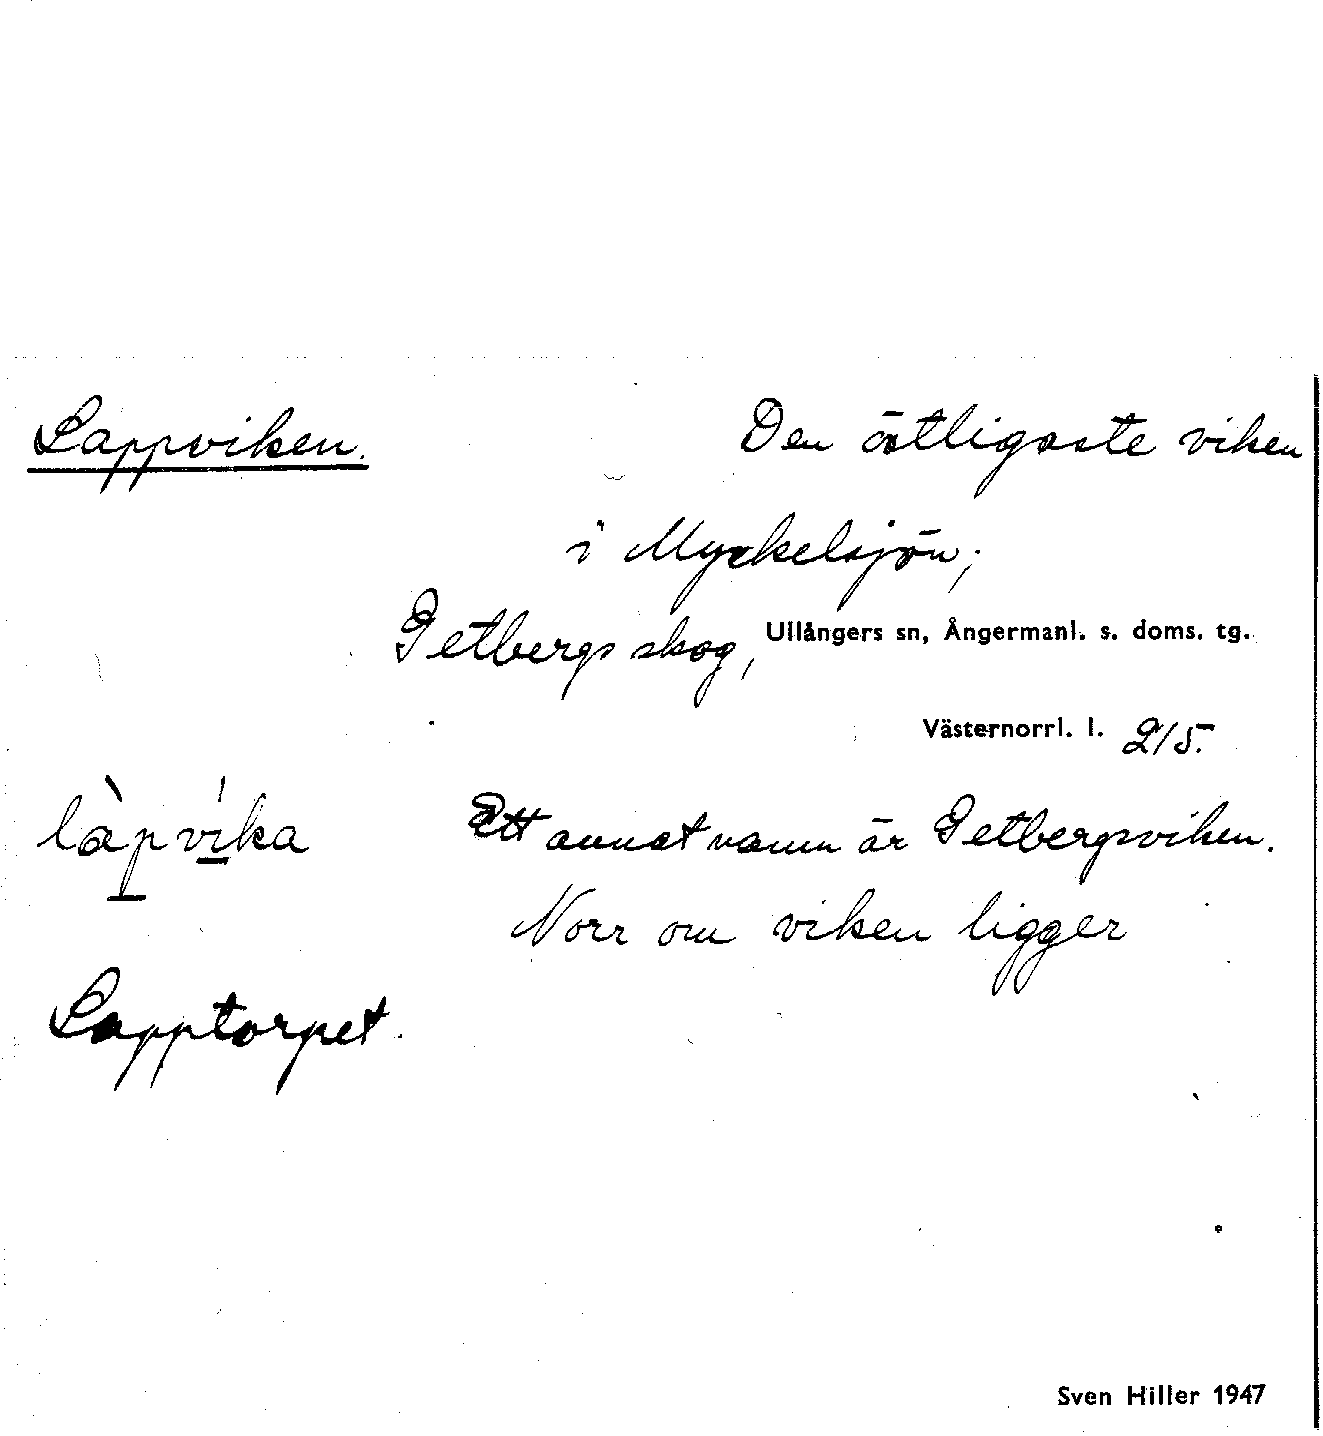 Lappviken. Den östligaste viken
i Myckelsjön;
Getbergs skog, Ullångers sn, Ångermanl. s. doms. tg.
Västernorrl. l. 2/5.
làpvíka Ett annat namn är Getbergsviken.
Norr om viken ligger
Lapptorpet.
Sven Hiller 1947